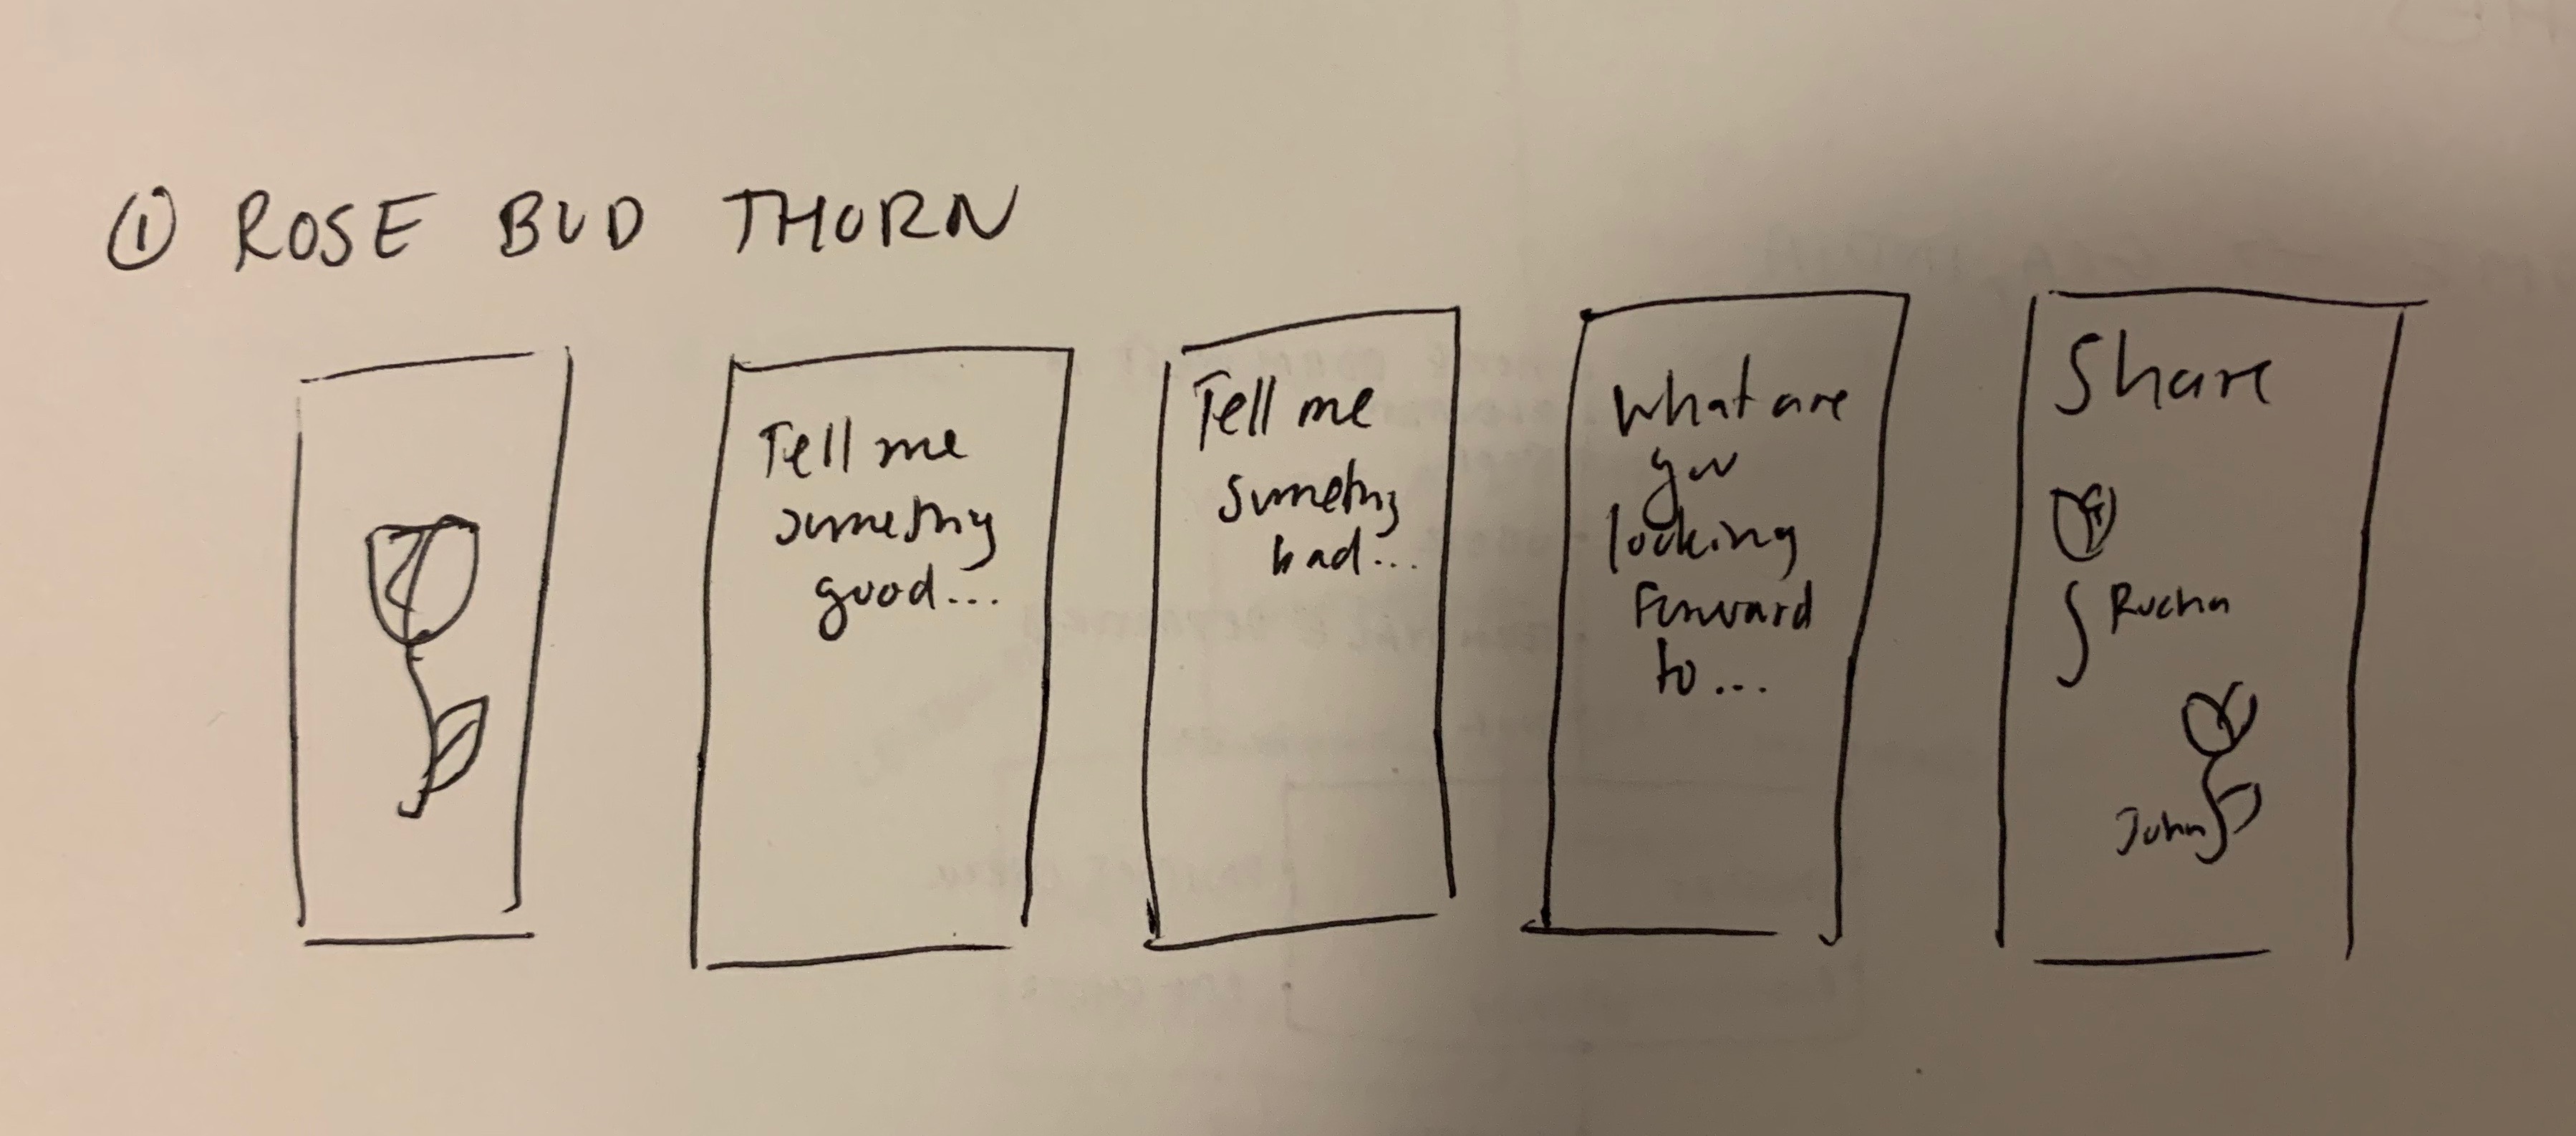 ① ROSE BUD THORN
Tell me
something
good...
Tell me
something
bad...
What are
you
looking
forward
to...
Share
Rucha
John